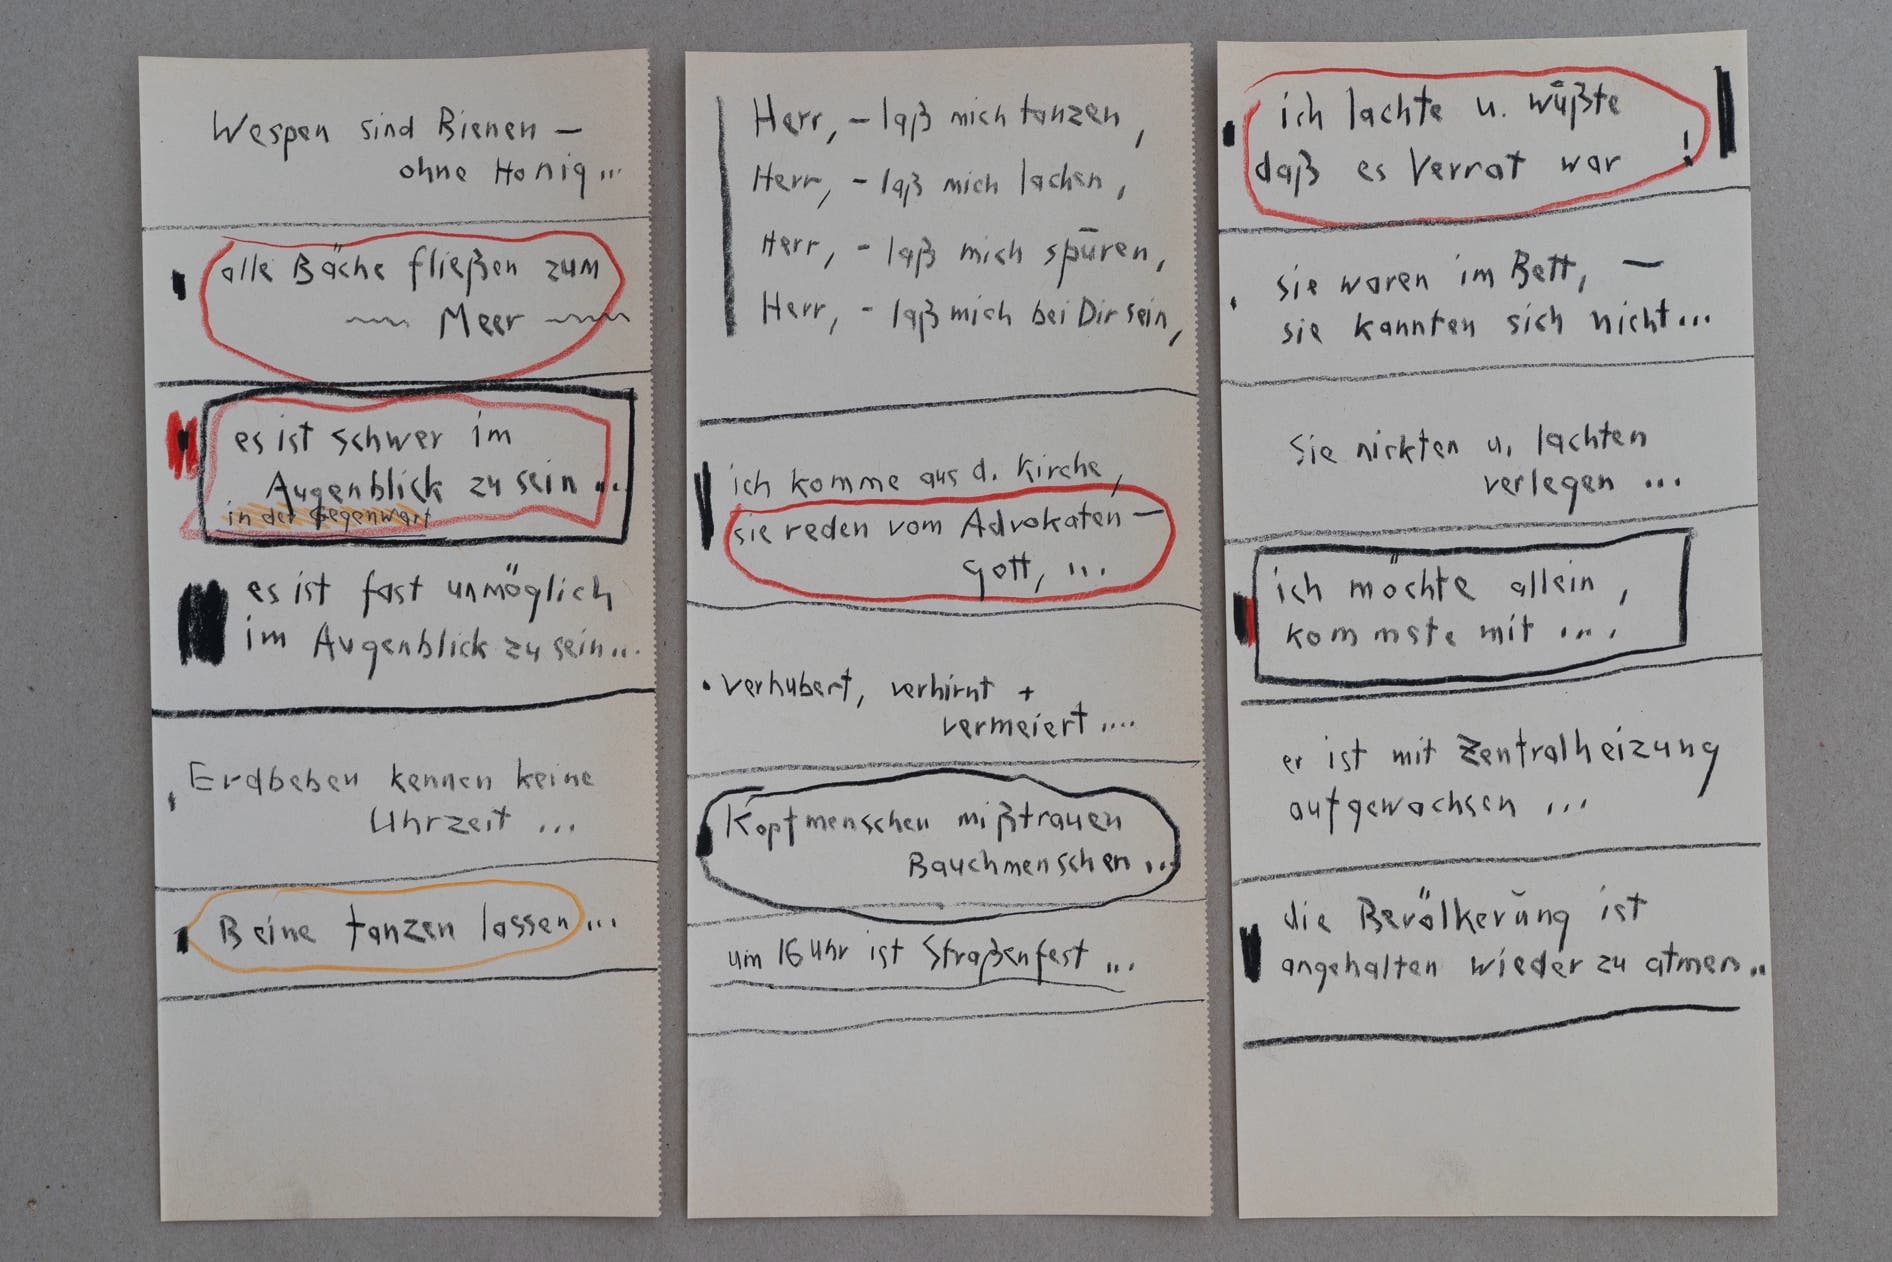 Wespen sind Bienen –
ohne Honig...
alle Bäche fließen zum
Meer
es ist schwer im
Augenblick zu sein...
in der Gegenwart
es ist fast unmöglich
im Augenblick zu sein...
Erdbeben kennen keine
Uhrzeit ...
Beine tanzen lassen...
Herr, – laß mich tanzen,
Herr, – laß mich lachen,
Herr, – laß mich spüren,
Herr, – laß mich bei Dir sein,
ich komme aus d. Kirche,
sie reden vom Advokaten –
gott, ...
verhubert, verhirnt +
vermeiert ....
Kopfmenschen mißtrauen
Bauchmenschen ...
um 16 Uhr ist Straßenfest ...
ich lachte u. wüßte
daß es Verrat war !
sie waren im Bett, –
sie kannten sich nicht...
Sie nickten u. lachten
verlegen ...
ich möchte allein,
kommste mit ....
er ist mit Zentralheizung
aufgewachsen ...
die Bevölkerung ist
angehalten wieder zu atmen..